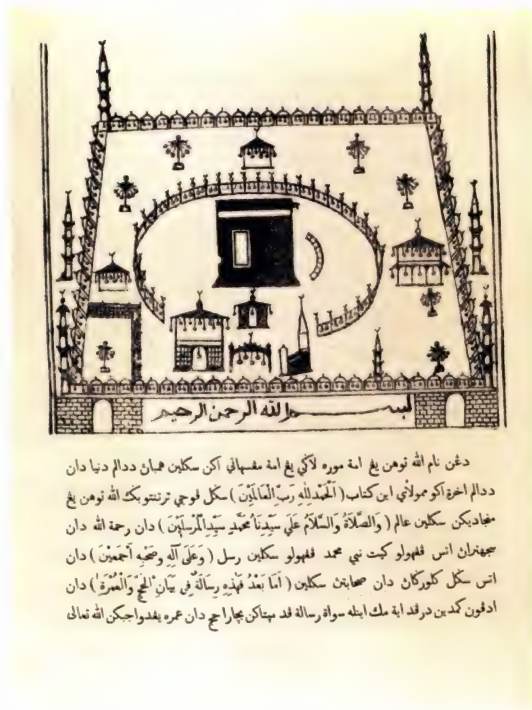 بسم الله الرحمن الرحيم
دغن نام الله توهن يغ امة موره لاكي يغ امة مغسهاني اكن سكلين همبان ددالم دنيا دان
ددالم اخرة اكو مولائي اين كتاب (اَلْحَمْدُ لِلّٰهِ رَبِّ الْعَالَمِيْنَ) سكل فوجي ترتنتو بك الله توهن يغ
منجاديكن سكلين عالم (وَالصَّلَاةُ وَالسَّلَامُ عَلَي سَيِّدِنَا مُحَمَّدٍ سَيِّدِ الْمُرْسَلِيْنَ) دان رحمة الله دان
سجهتران اتس ففهولو كيت نبي محمد ففهولو سكلين رسل (وَعَلَي آلِهِ وَصَحْبِهِ اَجْمَعِيْنَ) دان
اتس سكل كلوركان دان صحابتن سكلين (اَمَّا بَعْدُ فَهٰذِهِ رِسَالَةٌ فِي بَيَانِ الْحَجِّ وَالْعُمْرَةِ) دان
ادفون كمدين درفد ايت مك اينله سوات رسالة فد مپتاكن بچارا حج دان عمره يغ دواجبكن الله تعالى